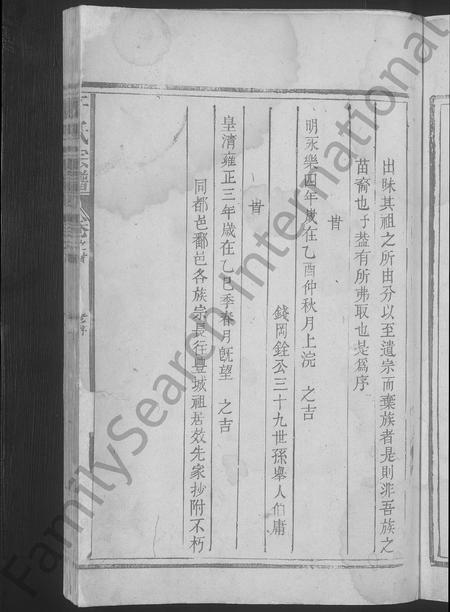 出昧其祖之所由分以至遺宗而棄族者是則非吾族之
苗裔也予葢有所弗取也是爲序
旹
明永樂四年歲在乙酉仲秋月上浣 之吉
錢岡銓公三十九世孫舉人伯庸
旹
皇清雍正三年歲在乙巳季春月旣望 之吉
同都邑鄱邑各族宗長往豐城祖居效先家抄附不朽
氏宗譜
卷之首
FamilySearch International